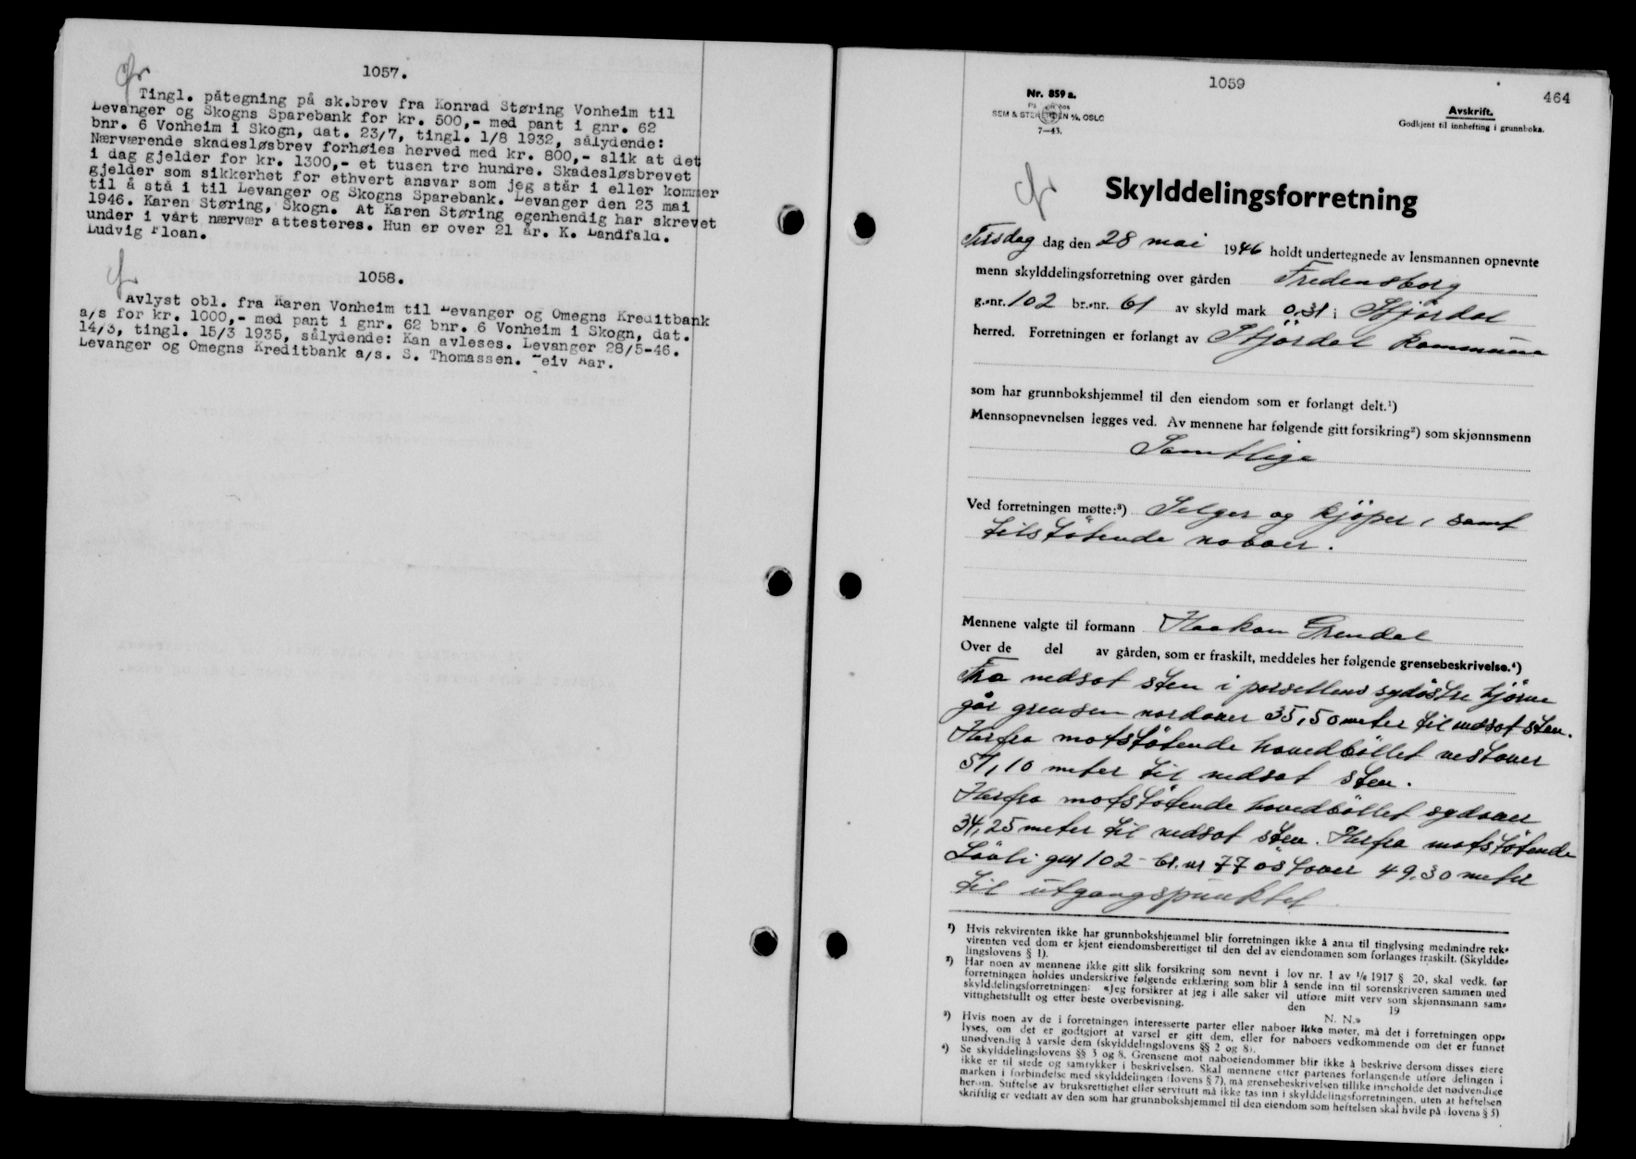 1057.
Tingl. påtegning på sk.brev fra Konrad Støring Vonheim til
Levanger og Skogns Sparebank for kr. 500,- med pant i gnr. 62
bnr. 6 Vonheim i Skogn, dat. 23/7, tingl. 1/8 1932, sålydende:
Nærværende skadesløsbrev forhøies herved med kr. 800,- slik at det
i dag gjelder for kr. 1300,- et tusen tre hundre. Skadesløsbrevet
gjelder som sikkerhet for ethvert ansvar som jeg står i eller kommer
til å stå i til Levanger og Skogns Sparebank. Levanger den 23 mai
1946. Karen Støring, Skogn. At Karen Støring egenhendig har skrevet
under i vårt nærvær attesteres. Hun er over 21 år. K. Landfald.
Ludvig Floan.
1058.
Avlyst obl. fra Karen Vonheim til Levanger og Omegns Kreditbank
a/s for kr. 1000,- med pant i gnr. 62 bnr. 6 Vonheim i Skogn, dat.
14/3, tingl. 15/3 1935, sålydende: Kan avleses. Levanger 28/5-46.
Levanger og Omegns Kreditbank a/s. S. Thomassen. Leiv Aar.
1059
464
Nr. 859 a.
SEM & STENERSEN A/s, OSLO
7—43.
Avskrift.
Godkjent til innhefting i grunnboka.
Skylddelingsforretning
Tirsdag dag den 28 mai 1946 holdt undertegnede av lensmannen opnevnte
menn skylddelingsforretning over gården Fredensborg
g.-nr. 102 br.-nr. 61 av skyld mark 0,31 i Stjördal
herred. Forretningen er forlangt av Stjördal kommune
som har grunnbokshjemmel til den eiendom som er forlangt delt.¹)
Mennsopnevnelsen legges ved. Av mennene har følgende gitt forsikring²) som skjønnsmenn
Samtlige
Ved forretningen møtte:³) Selger og kjöper, samt
tilstötende naboer.
Mennene valgte til formann Haakon Grendal
Over de del av gården, som er fraskilt, meddeles her følgende grensebeskrivelse.⁴)
Fra nedsat sten i parsellens sydöstre hjörne
går grensen nordover 35,50 meter til nedsat sten.
Herfra motstötende hovedböllet vestover
51,10 meter til nedsat sten.
Herfra motstötende hovedböllet sydover
34,25 meter til nedsat sten. Herfra motstötende
gnr 102 - br. nr 77 östover 49.30 meter
til utgangspunktet
¹) Hvis rekvirenten ikke har grunnbokshjemmel blir forretningen ikke å anta til tinglysing medmindre rek-
virenten ved dom er kjent eiendomsberettiget til den del av eiendommen som forlanges fraskilt. (Skyldde-
lingslovens § 1).
²) Har noen av mennene ikke gitt slik forsikring som nevnt i lov nr. 1 av 1/6 1917 § 20, skal vedk. før
forretningen holdes underskrive følgende erklæring som blir å sende inn til sorenskriveren sammen med
skylddelingsforretningen: «Jeg forsikrer at jeg i alle saker vil utføre mitt verv som skjønnsmann sam-
vittighetsfullt og etter beste overbevisning. den 19
N. N.»
³) Hvis noen av de i forretningen interesserte parter eller naboer ikke møter, må det i forretningen opp-
lyses, om det er godtgjort at varsel er gitt dem, eller for naboers vedkommende om det er funnet
unødvendig å varsle dem (skylddelingslovens §§ 2 og 8).
⁴) Se skylddelingslovens §§ 3 og 8. Grensene mot naboeiendommer blir ikke å beskrive dersom disses eiere
ikke er til stede og samtykker i beskrivelsen. Skal mennene etter partenes forlangende utføre delingen i
marken i forbindelse med skylddelingen (lovens § 7), må grensebeskrivelsen tillike inneholde det nødvendige
herom. Stiftelse av bruksrettighet eller servitutt må ikke tas inn i skylddelingsforretningen, uten at heftelsen
skriftlig er vedtatt av den som har grunnbokshjemmel til den eiendom som heftelsen skal hvile på (lovens § 5)